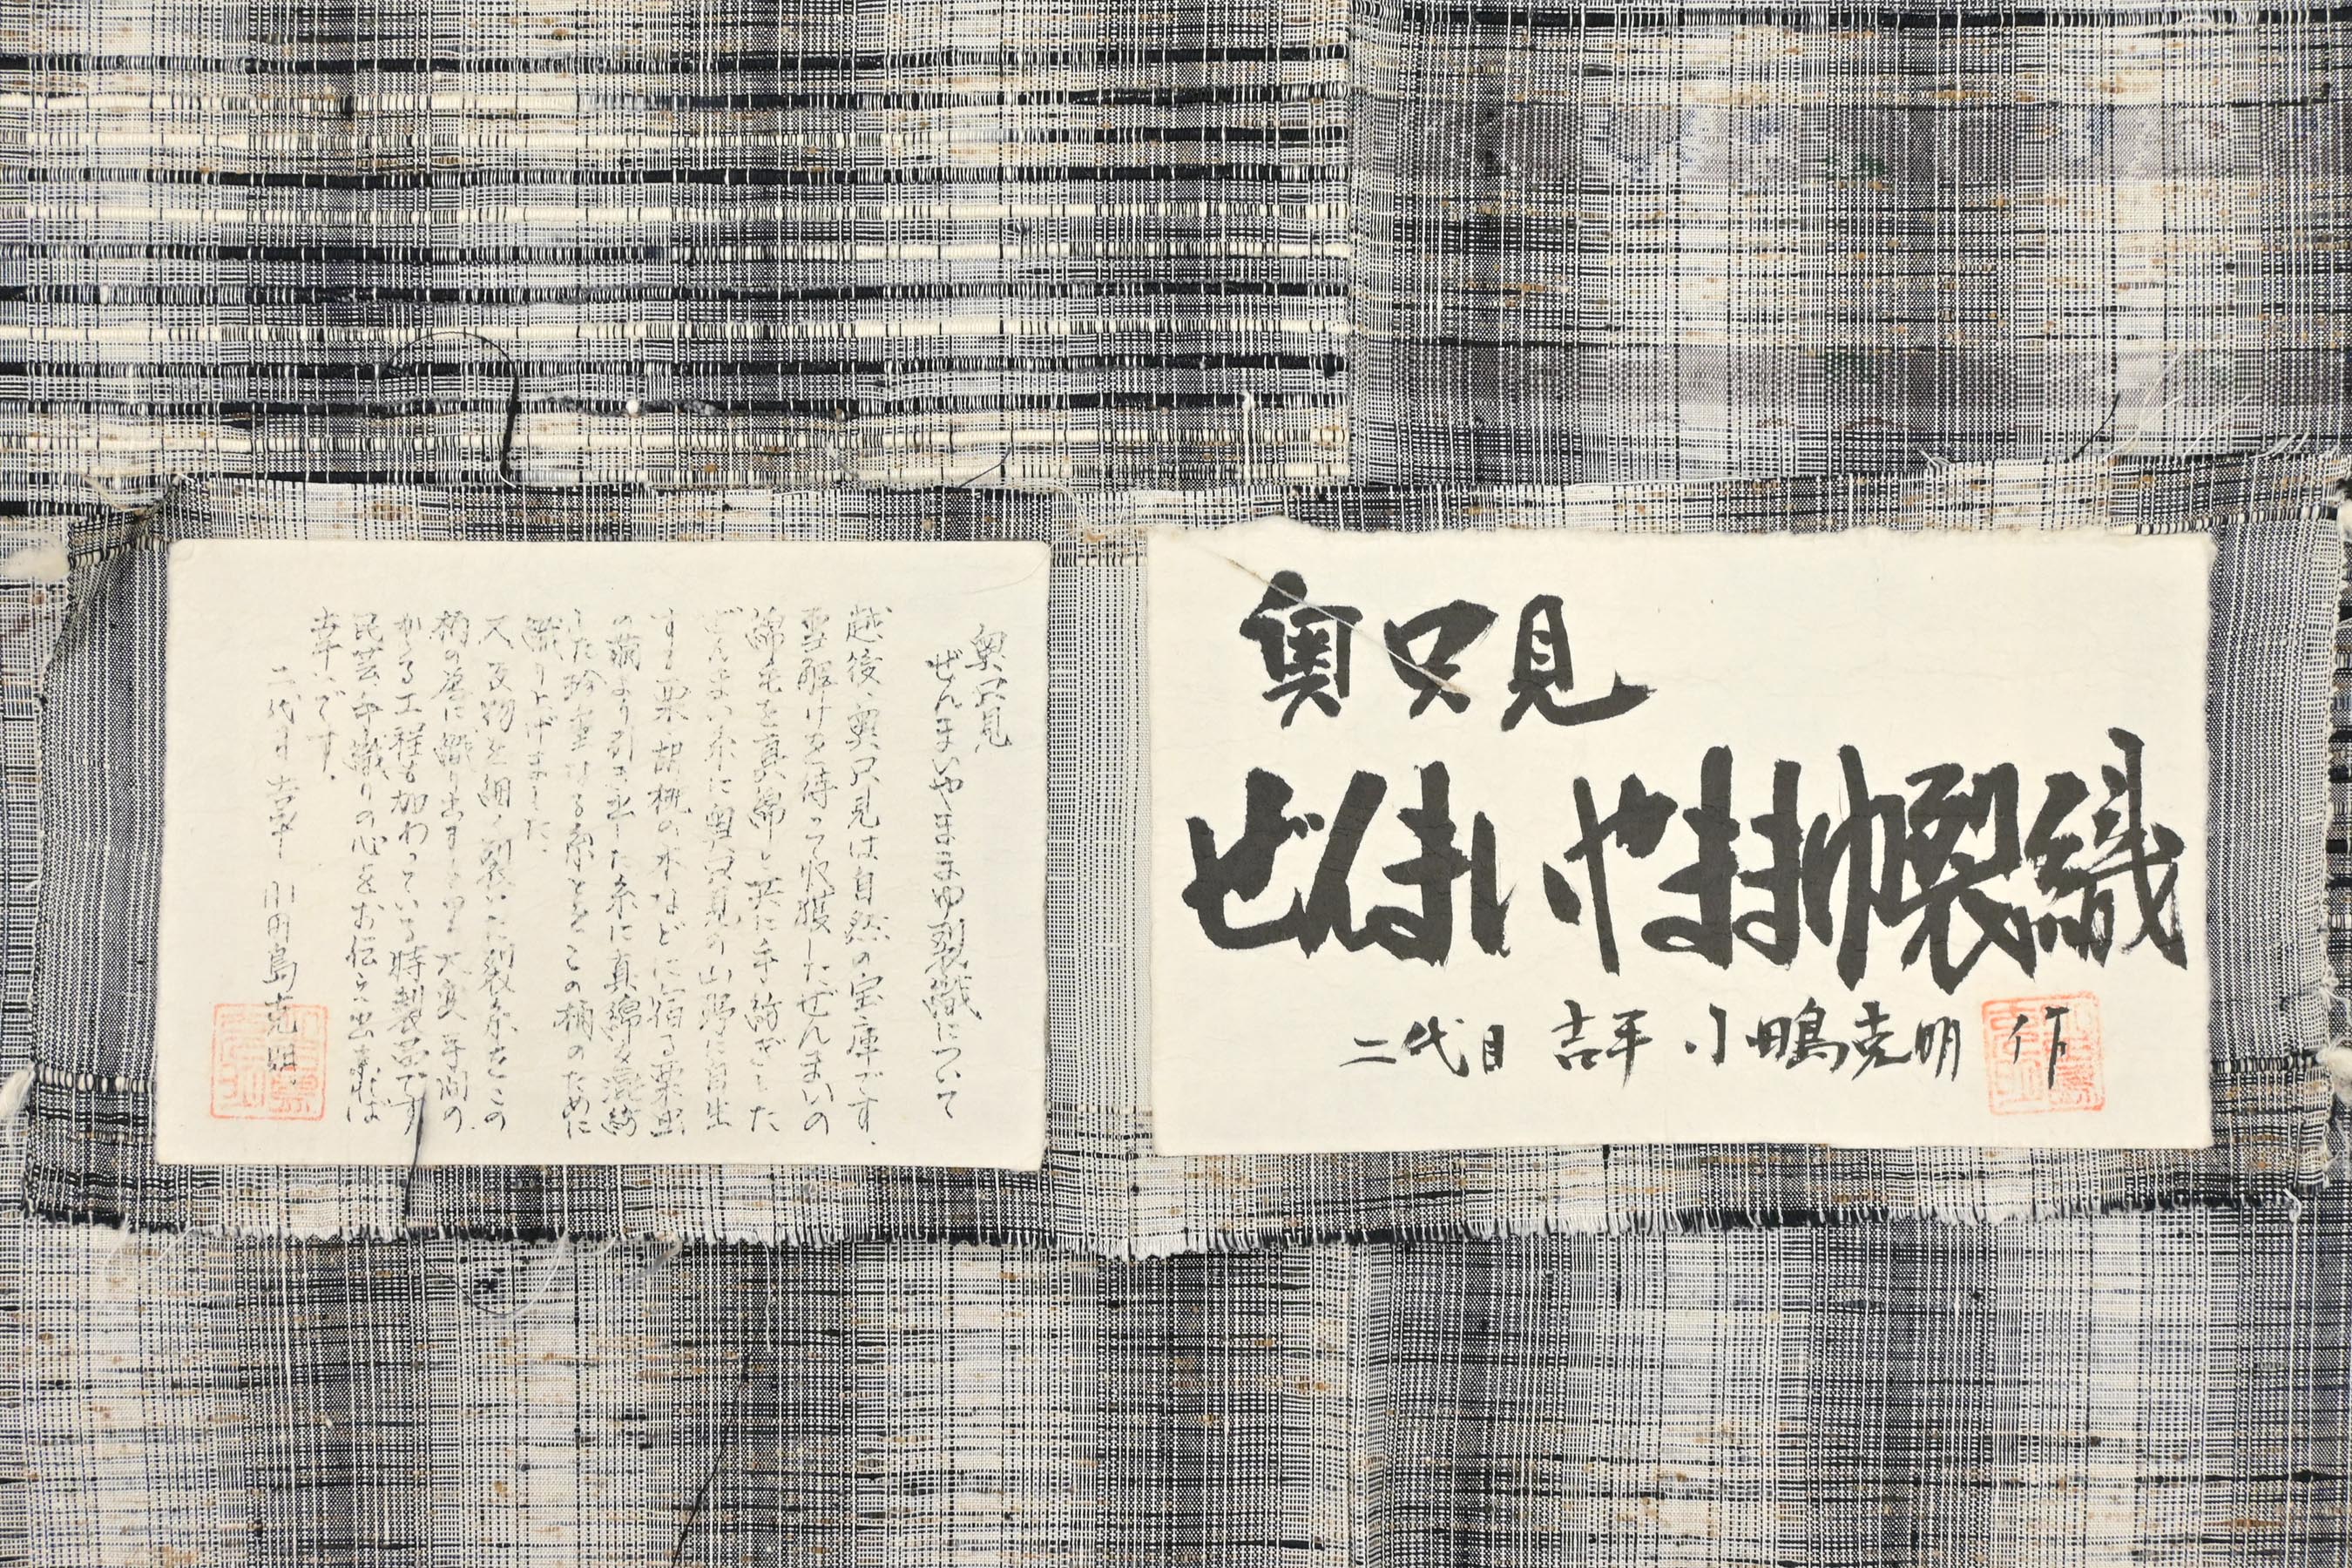 奥只見
ぜんまい やままゆ裂織
二代目 吉平 小田島克明 作
奥只見
ぜんまいやままゆ裂織について
越後、奥只見は自然の宝庫です。
雪解けを待って収獲したぜんまいの
綿毛を真綿と共に手紡ぎした
ぜんまい糸に奥只見の山野に自生
する栗、胡桃の木などに宿る栗虫
の繭より引き出した糸に真綿を混紡
した珍重なる糸とをこの柄のために
織り上げました
又反物を細く裂いた裂糸をこの
柄の為に織り出すという大変手間の
かゝる工程も加わっている特製品です
民芸手織りの心をお伝え出来れば
幸いです.
二代目 吉平 小田島克明